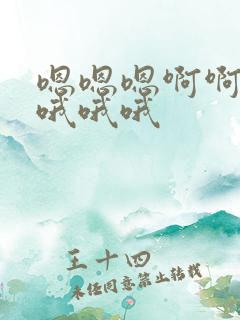 嗯嗯嗯啊啊
哦哦哦
王十四
未经同意禁止转载